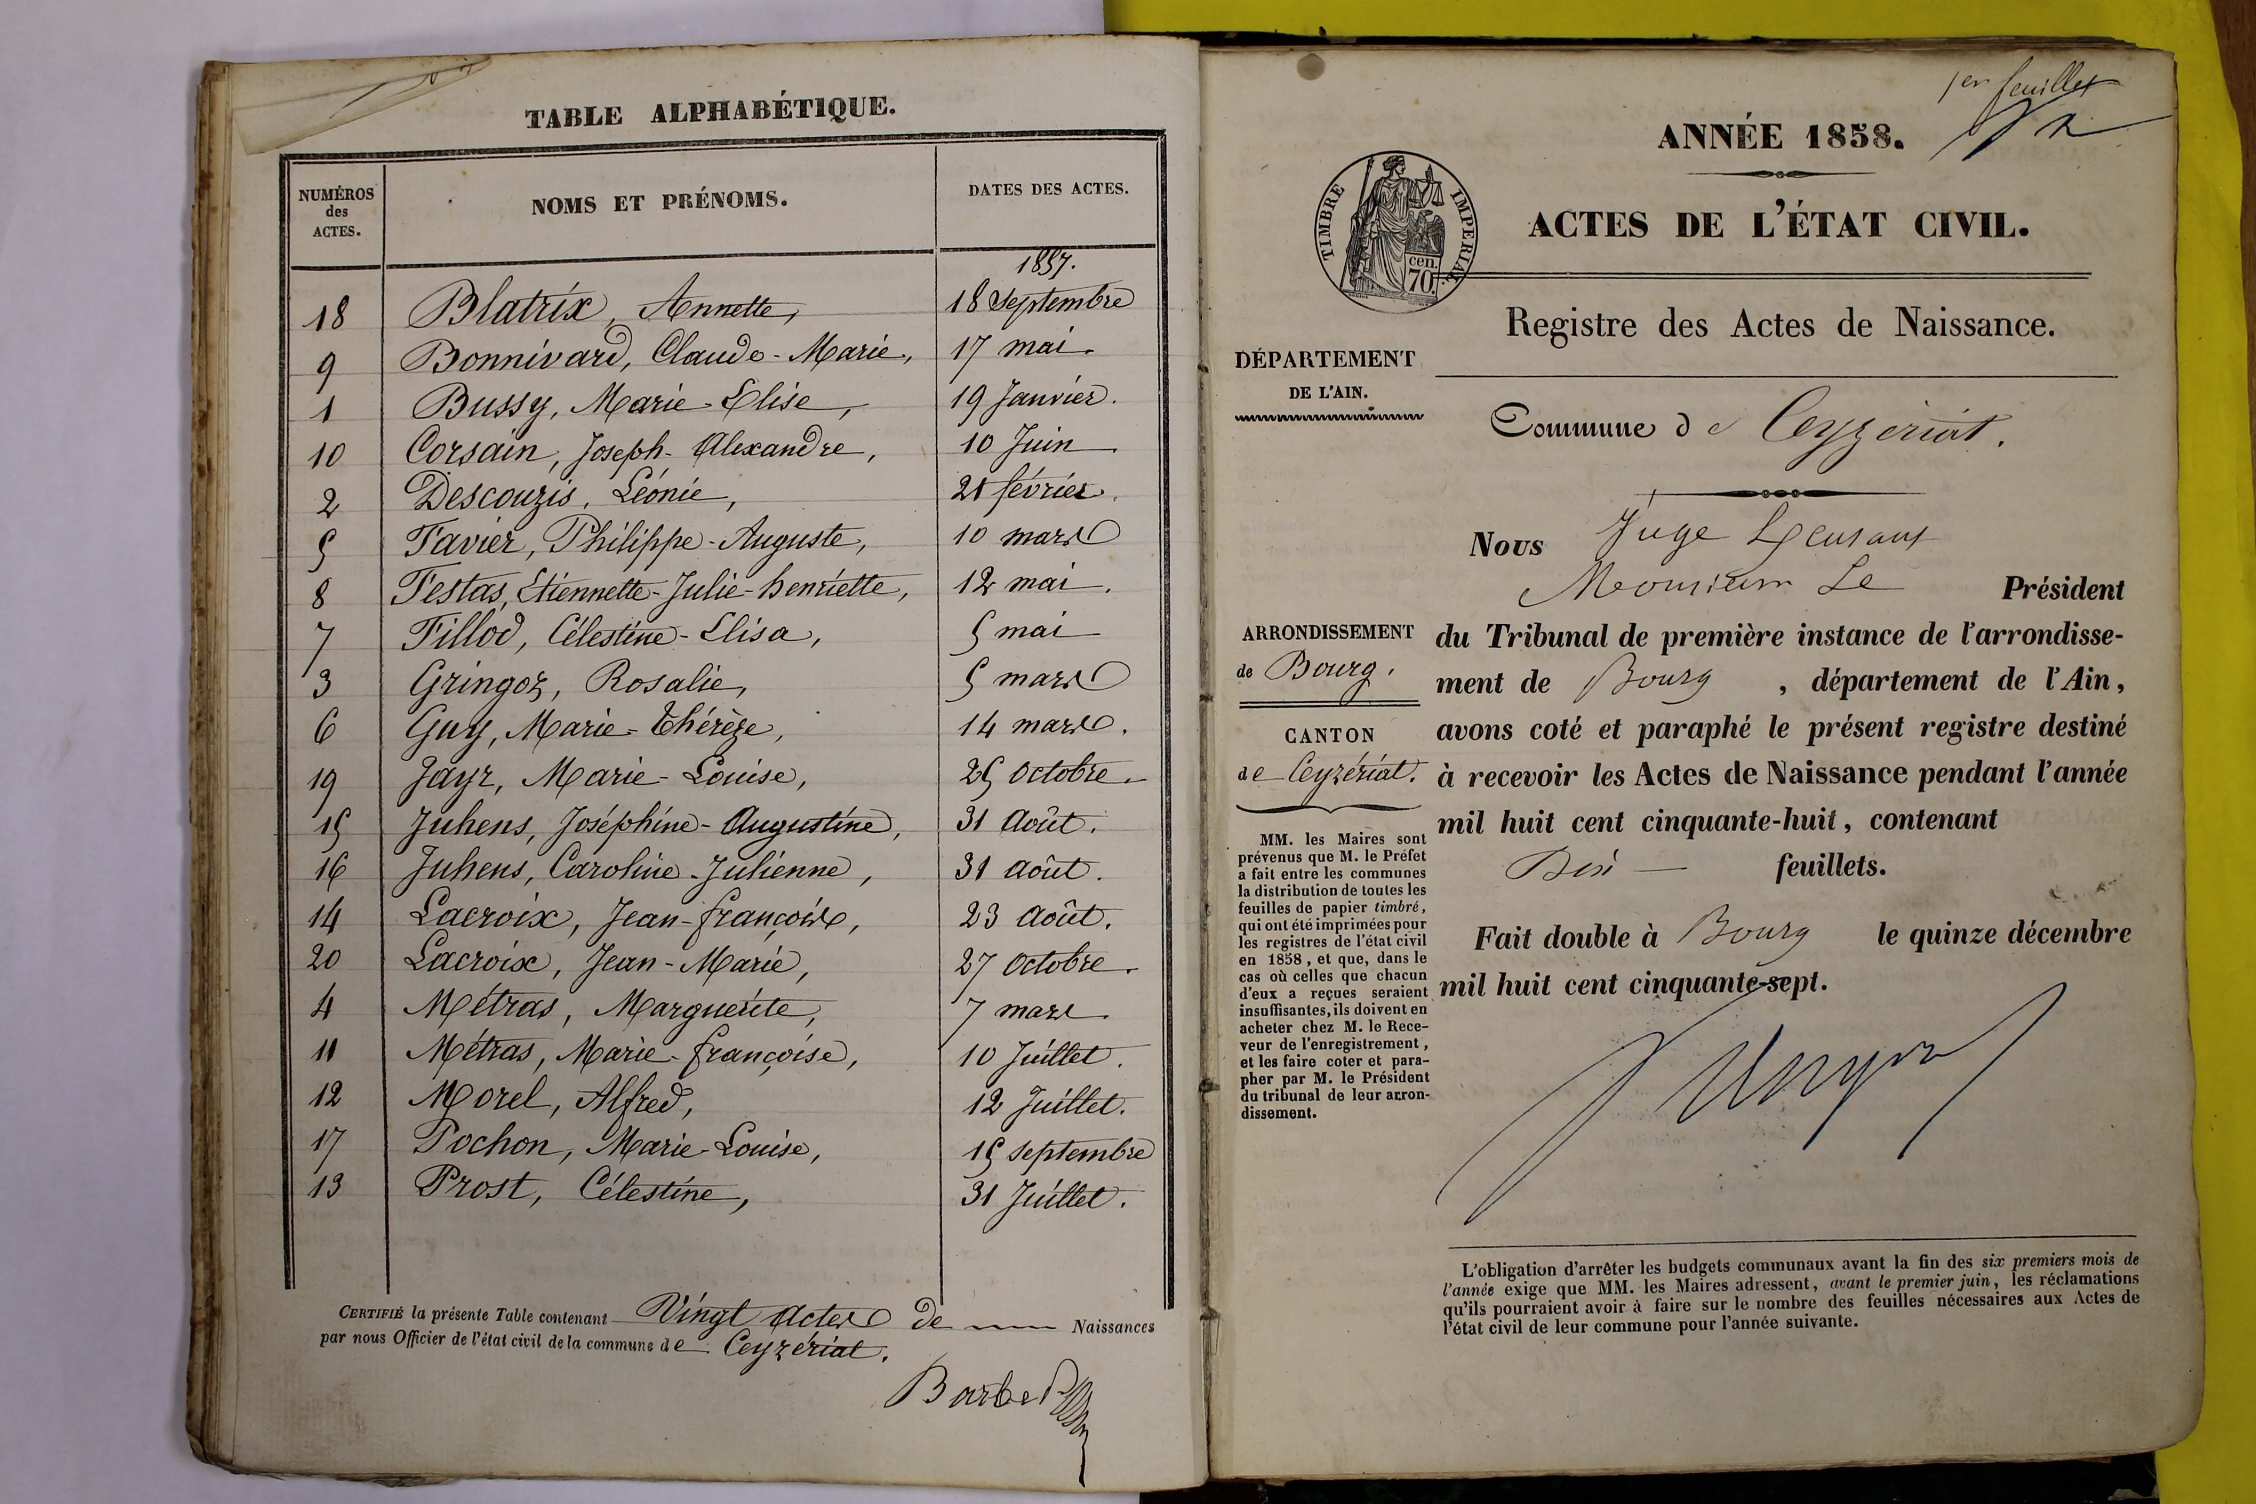 TABLE ALPHABÉTIQUE.
NUMÉROS des ACTES. NOMS ET PRÉNOMS. DATES DES ACTES.
1857.
18 Blatrix, Annette, 18 Septembre
9 Bonnivard, Claude-Marie, 17 mai.
1 Bussy, Marie-Elise, 19 Janvier.
10 Corsain, Joseph-Alexandre, 10 Juin
2 Descouzis, Léonie, 21 février.
5 Favier, Philippe-Auguste, 10 mars
8 Festas, Etiennette-Julie-henriette, 12 mai.
7 Fillod, Célestine-Elisa, 5 mai
3 Gringoz, Rosalie, 5 mars
6 Guy, Marie-Thérèze, 14 mars.
19 Jayr, Marie-Louise, 25 Octobre.
15 Juhens, Joséphine-Augustine, 31 Août.
16 Juhens, Caroline-Julienne, 31 Août.
14 Lacroix, Jean-françois, 23 Août.
20 Lacroix, Jean-Marie, 27 Octobre.
4 Métras, Marguerite, 7 mars.
11 Métras, Marie-françoise, 10 Juillet.
12 Morel, Alfred, 12 Juillet.
17 Pochon, Marie-Louise, 15 Septembre
13 Prost, Célestine, 31 Juillet.
CERTIFIÉ la présente Table contenant Vingt Actes de Naissances
par nous Officier de l'état civil de la commune de Ceyzériat.
Barbet
1er feuillet
ANNÉE 1858.
TIMBRE IMPERIAL
cen. 70.
ACTES DE L'ÉTAT CIVIL.
Registre des Actes de Naissance.
DÉPARTEMENT
DE L'AIN.
Commune de Ceyzériat.
Nous Juge
Monsieur Le Président
ARRONDISSEMENT
de Bourg.
CANTON
de Ceyzériat.
du Tribunal de première instance de l'arrondisse-
ment de Bourg, département de l'Ain,
avons coté et paraphé le présent registre destiné
à recevoir les Actes de Naissance pendant l'année
mil huit cent cinquante-huit, contenant
Dix feuillets.
Fait double à Bourg le quinze décembre
mil huit cent cinquante-sept.
MM. les Maires sont
prévenus que M. le Préfet
a fait entre les communes
la distribution de toutes les
feuilles de papier timbré,
qui ont été imprimées pour
les registres de l'état civil
en 1858, et que, dans le
cas où celles que chacun
d'eux a reçues seraient
insuffisantes, ils doivent en
acheter chez M. le Rece-
veur de l'enregistrement,
et les faire coter et para-
pher par M. le Président
du tribunal de leur arron-
dissement.
L'obligation d'arrêter les budgets communaux avant la fin des six premiers mois de
l'année exige que MM. les Maires adressent, avant le premier juin, les réclamations
qu'ils pourraient avoir à faire sur le nombre des feuilles nécessaires aux Actes de
l'état civil de leur commune pour l'année suivante.